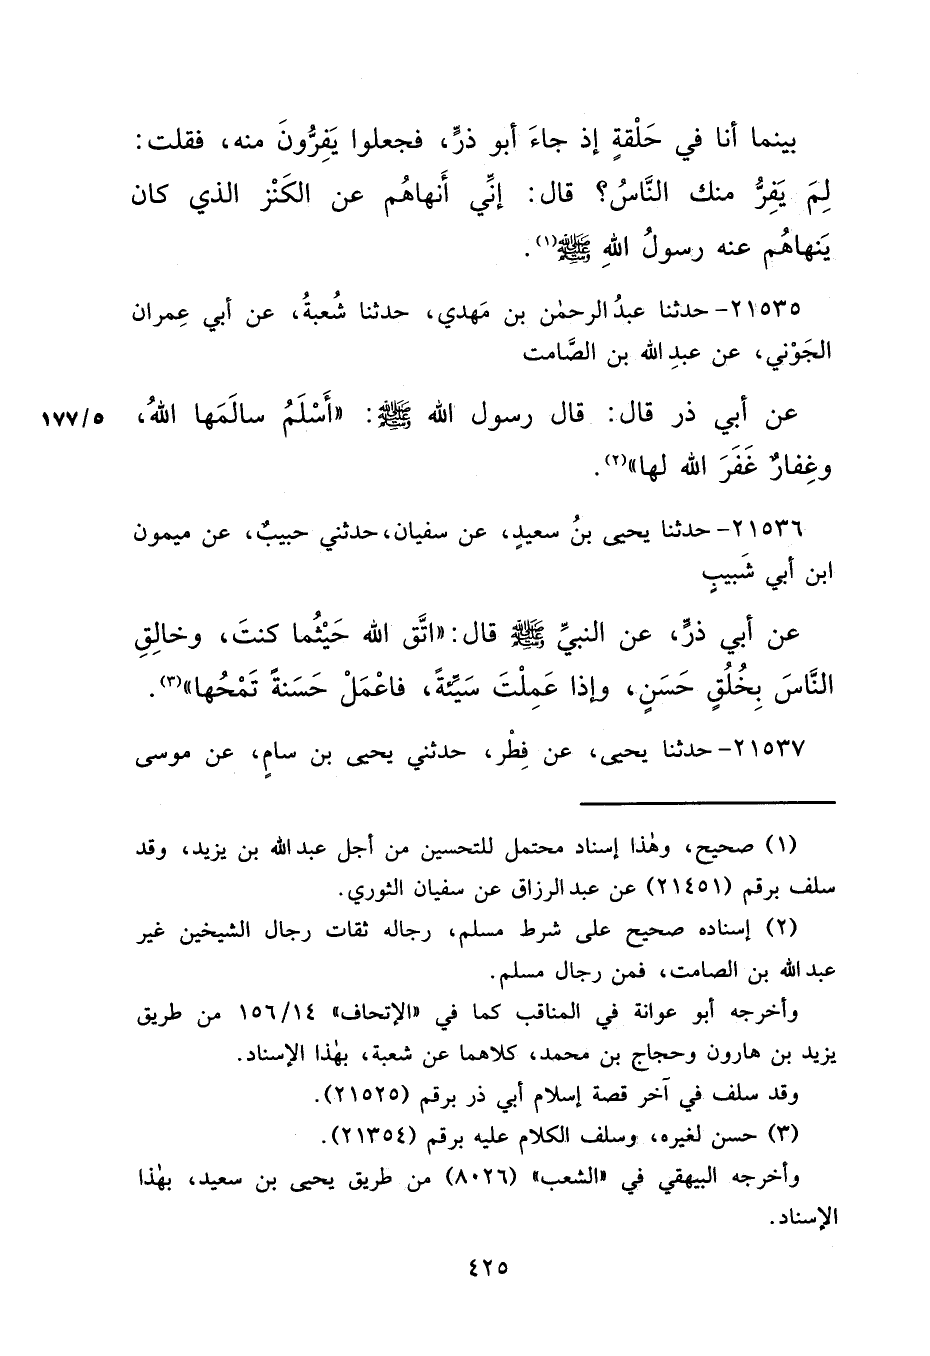 بينما أنا في حَلْقةٍ إذ جاءَ أبو ذرٍّ، فجعلوا يَفِرُّونَ منه، فقلت:
لِمَ يَفِرُّ منك النَّاسُ؟ قال: إنِّي أَنهاهُم عن الكَنْز الذي كان
يَنهاهُم عنه رسولُ اللهِ ﷺ(١).
٢١٥٣٥- حدثنا عبدُ الرحمٰن بن مَهدي، حدثنا شُعبةُ، عن أبي عِمران
الجَوْني، عن عبدِ الله بن الصَّامت
عن أبي ذر قال: قال رسول الله ﷺ: «أَسْلَمُ سالَمَها اللهُ، ١٧٧/٥
وغِفارٌ غَفَرَ الله لها»(٢).
٢١٥٣٦- حدثنا يحيى بنُ سعيدٍ، عن سفيان، حدثني حبيبٌ، عن ميمون
ابن أبي شَبيبٍ
عن أبي ذرٍّ، عن النبيِّ ﷺ قال: «اتَّق الله حَيْثُما كنتَ، وخالِقِ
النَّاسَ بِخُلُقٍ حَسَنٍ، وإذا عَمِلْتَ سَيِّئةً، فاعْمَلْ حَسَنةً تَمْحُها»(٣).
٢١٥٣٧- حدثنا يحيى، عن فِطْر، حدثني يحيى بن سامٍ، عن موسى
(١) صحيح، وهٰذا إسناد محتمل للتحسين من أجل عبد الله بن يزيد، وقد
سلف برقم (٢١٤٥١) عن عبد الرزاق عن سفيان الثوري.
(٢) إسناده صحيح على شرط مسلم، رجاله ثقات رجال الشيخين غير
عبد الله بن الصامت، فمن رجال مسلم.
وأخرجه أبو عوانة في المناقب كما في «الإتحاف» ١٥٦/١٤ من طريق
يزيد بن هارون وحجاج بن محمد، كلاهما عن شعبة، بهٰذا الإسناد.
وقد سلف في آخر قصة إسلام أبي ذر برقم (٢١٥٢٥).
(٣) حسن لغيره، وسلف الكلام عليه برقم (٢١٣٥٤).
وأخرجه البيهقي في «الشعب» (٨٠٢٦) من طريق يحيى بن سعيد، بهٰذا
الإسناد.
٤٢٥